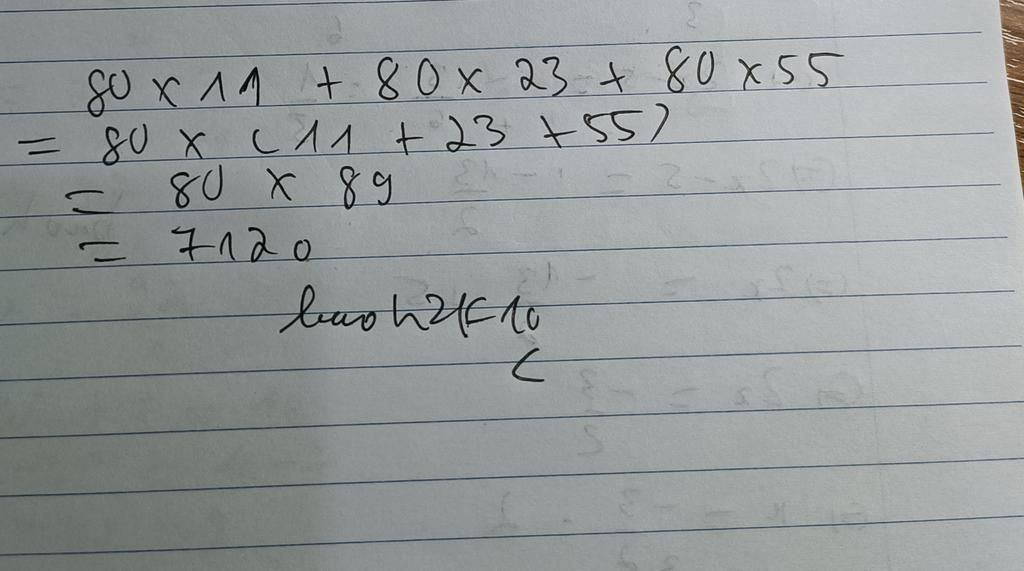 80 x 11 + 80 x 23 + 80 x 55
= 80 x (11 + 23 + 55)
= 80 x 89
= 7120